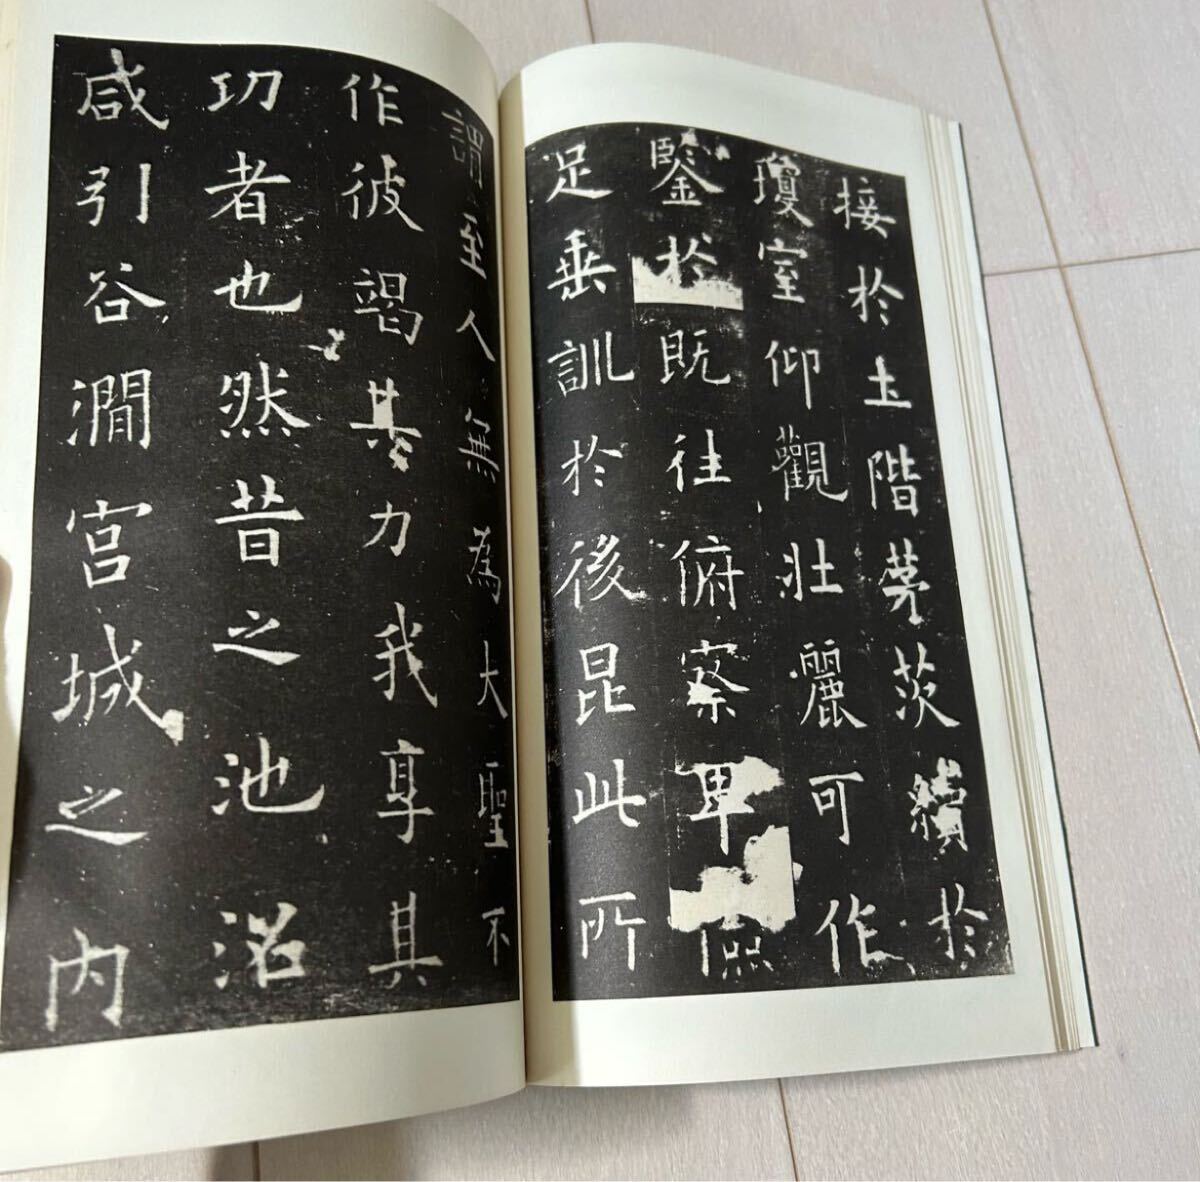 接於土階茅茨續於
瓊室仰觀壯麗可作
鑒於既往俯察卑儉
足垂訓於後昆此所
謂至人無為大聖不
作彼竭其力我享其
功者也然昔之池沼
咸引谷澗宮城之內